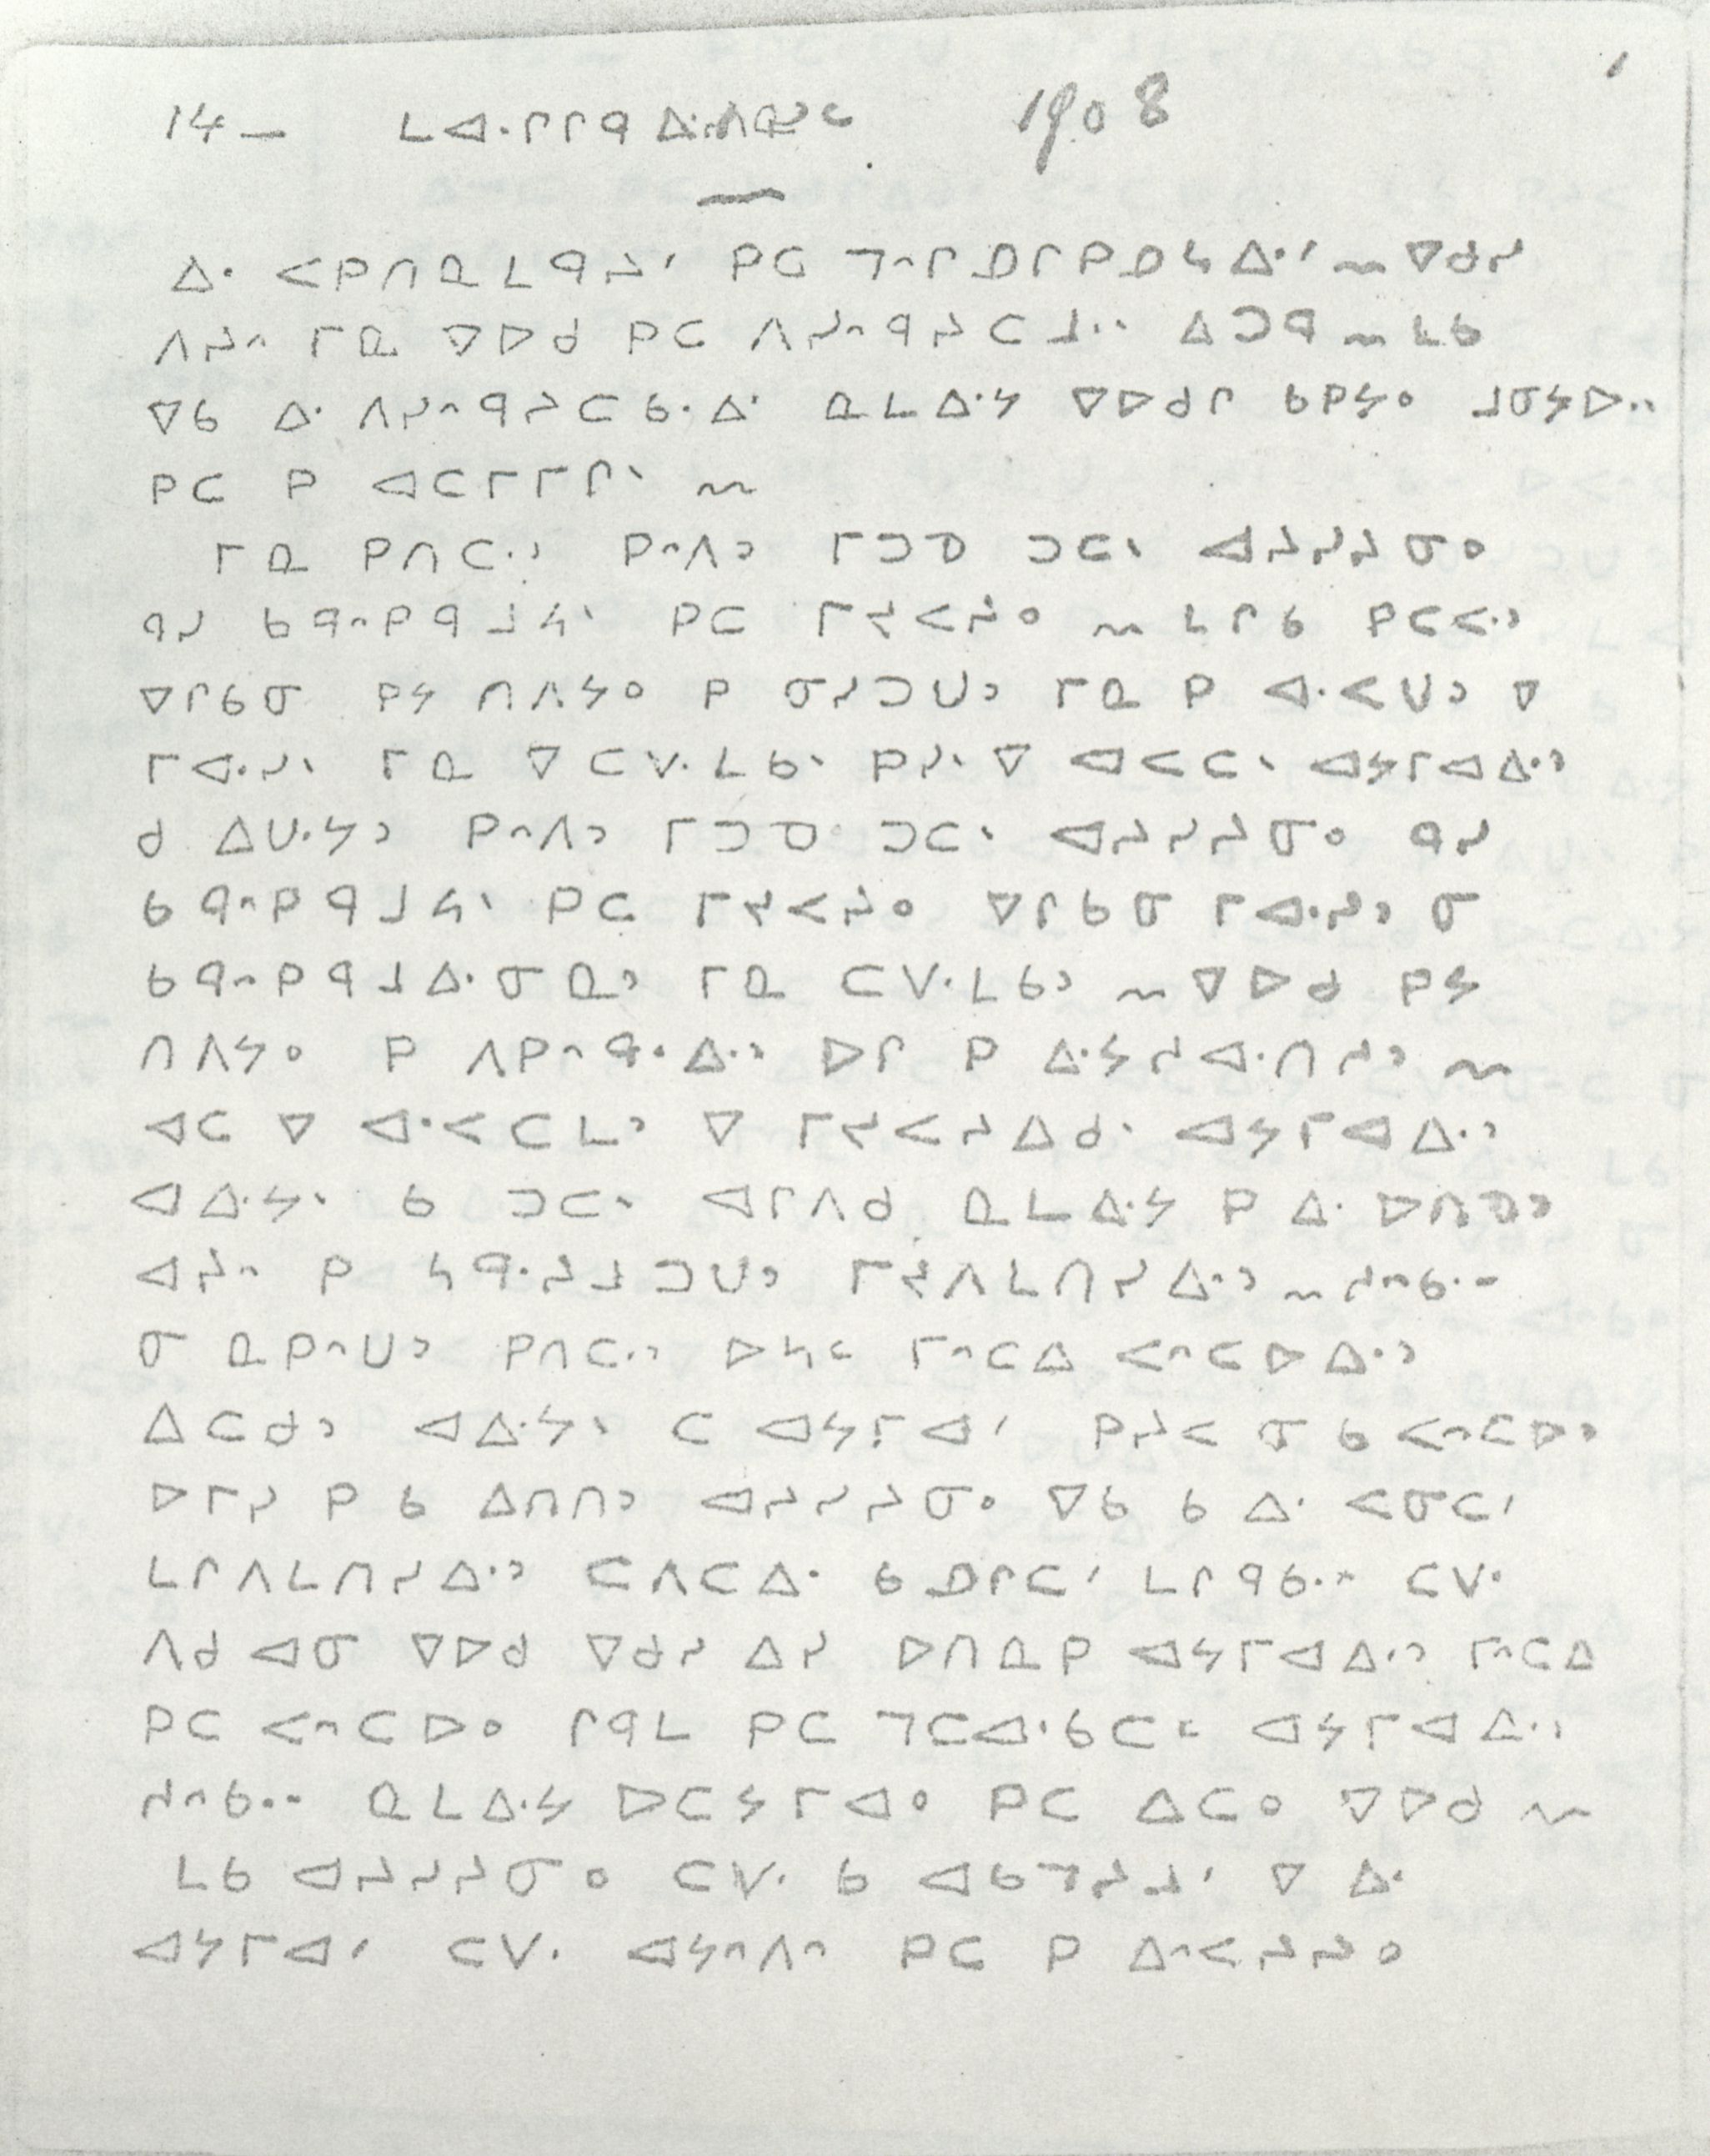 14— ᒪᐊᐧᒋᒋᑫ 1908
ᐃᐧ ᐸᑭᑎᓇᒪᑫᔨᐟ ᑭᑕ ᒣᐢᒋᑐᒋᑭᑐᓴᐃᐧᐟ ~ ᐁᑯᓯ
ᐱᓯᐢ ᒥᓇ ᐁᐅᑯ ᑭᑕ ᐱᓯᐢᑫᔨᑕᒧᐧᐧ ᐃᑐᑫ ~ ᒪᑲ
ᐁᑲ ᐃᐧ ᐱᓯᐢᑫᔨᑕᑲᐧᐃᐧ ᓇᒪᐃᐧᔭ ᐁᐅᑯᒋ ᑲᑭᔭᐤ ᒧᓂᔭᐅᐧᐧ
ᑭᑕ ᑭ ᐊᑕᒥᒥᒋᐠ ~
ᒥᓇ ᑭᑎᑕᐧᐣ ᑭᐢᐱᐣ ᒥᑐᓀ ᑐᑕᐠ ᐊᔨᓯᔨᓂᐤ
ᑫᓯ ᑲᑫᐢᑭᑫᒧᓴᐠ ᑭᑕ ᒥᔪᐸᔨᐤ ~ ᒪᒋᑲ ᑭᑕᐸᐧᐣ
ᐁᒋᑲᓂ ᑭᔭ ᑎᐱᔭᐤ ᑭ ᓂᓯᑐᑌᐣ ᒥᓇ ᑭ ᐊᐧᐸᑌᐣ ᐁ
ᒥᐊᐧᓯᐠ ᒥᓇ ᐁ ᑕᐯᐧᒪᑲᐠ ᑭᓯᐠ ᐁ ᐊᐸᑕᐠ ᐊᔭᒥᐊᐃᐧᐣ
ᑯ ᐃᑌᐧᔭᐣ ᑭᐢᐱᐣ ᒥᑐᓀ ᑐᑕᐠ ᐊᔨᓯᔨᓂᐤ ᑫᓯ
ᑲᑫᐢᑭᑫᒧᓴᐠ ᑭᑕ ᒥᔪᐸᔨᐤ ᐁᒋᑲᓂ ᒥᐊᐧᓯᐣ ᓂ
ᑲᑫᐢᑭᑫᒧᐃᐧᓂᓇᐣ ᒥᓇ ᑕᐯᐧᒪᑲᐣ ~ ᐁᐅᑯ ᑭᔭ
ᑎᐱᔭᐤ ᑭ ᐱᑭᐢᑫᐧᐃᐧᐣ ᐅᒋ ᑭ ᐃᐧᔭᓱᐊᐧᑎᓱᐣ ~
ᐊᑕ ᐁ ᐊᐧᐸᑕᒪᐣ ᐁ ᒥᔪᐸᔨᐃᑯᐠ ᐊᔭᒥᐊᐃᐧᐣ
ᐊᐃᐧᔭᐠ ᑲ ᑐᑕᐠ ᐊᒋᐱᑯ ᓇᒪᐃᐧᔭ ᑭ ᐃᐧ ᐅᑎᓀᐣ
ᐊᔨᐢ ᑭ ᓴᑫᐧᔨᒧᑐᑌᐣ ᒥᔪᐱᒪᑎᓯᐃᐧᐣ ~ ᓱᐢᑲᐧᐨ
ᓂ ᓇᑭᐢᑌᐣ ᑭᑎᑕᐧᐣ ᐅᓴᒼ ᒥᐢᑕᐃ ᐸᐢᑕᐅᐃᐧᐣ
ᐃᑕᑯᐣ ᐊᐃᐧᔭᐠ ᑕ ᐊᔭᒥᐊᐟ ᑭᓯᐸ ᓂ ᑲ ᐸᐢᑕᐅᐣ
ᐅᒥᓯ ᑭ ᑲ ᐃᑎᑎᐣ ᐊᔨᓯᔨᓂᐤ ᐁᑲ ᑲ ᐃᐧ ᐸᓂᑕᐟ
ᒪᒋᐱᒪᑎᓯᐃᐧᐣ ᑕᐱᑕᐃᐧ ᑲ ᑐᒋᑕᐟ ᒪᒋᑫᑲᐧᕀ ᑕᐯᐧ
ᐱᑯ ᐊᓂ ᐁᐅᑯ ᐁᑯᓯ ᐃᓯ ᐅᑎᓇᑭ ᐊᔭᒥᐊᐃᐧᐣ ᒥᐢᑕᐃ
ᑭᑕ ᐸᐢᑕᐅᐤ ᒋᑫᒪ ᑭᑕ ᒣᑕᐊᐧᑲᑕᒼ ᐊᔭᒥᐊᐃᐧᐣ
ᓱᐢᑲᐧᐨ ᓇᒪᐃᐧᔭ ᐅᑕᔭᒥᐊᐤ ᑭᑕ ᐃᑕᐤ ᐁᐅᑯ ~
ᒪᑲ ᐊᔨᓯᔨᓂᐤ ᑕᐯᐧ ᑲ ᐊᑲᒣᔨᒧᐟ ᐁ ᐃᐧ
ᐊᔭᒥᐊᐟ ᑕᐯᐧ ᐊᔭᐢᐱᐢ ᑭᑕ ᑭ ᐃᐢᐸᔨᔨᐤ